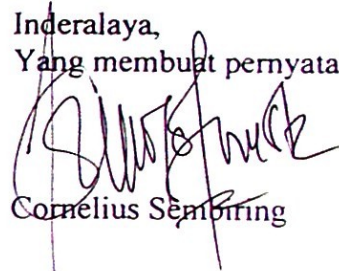 Inderalaya,
Yang membuat pernyata
Cornelius Sembiring